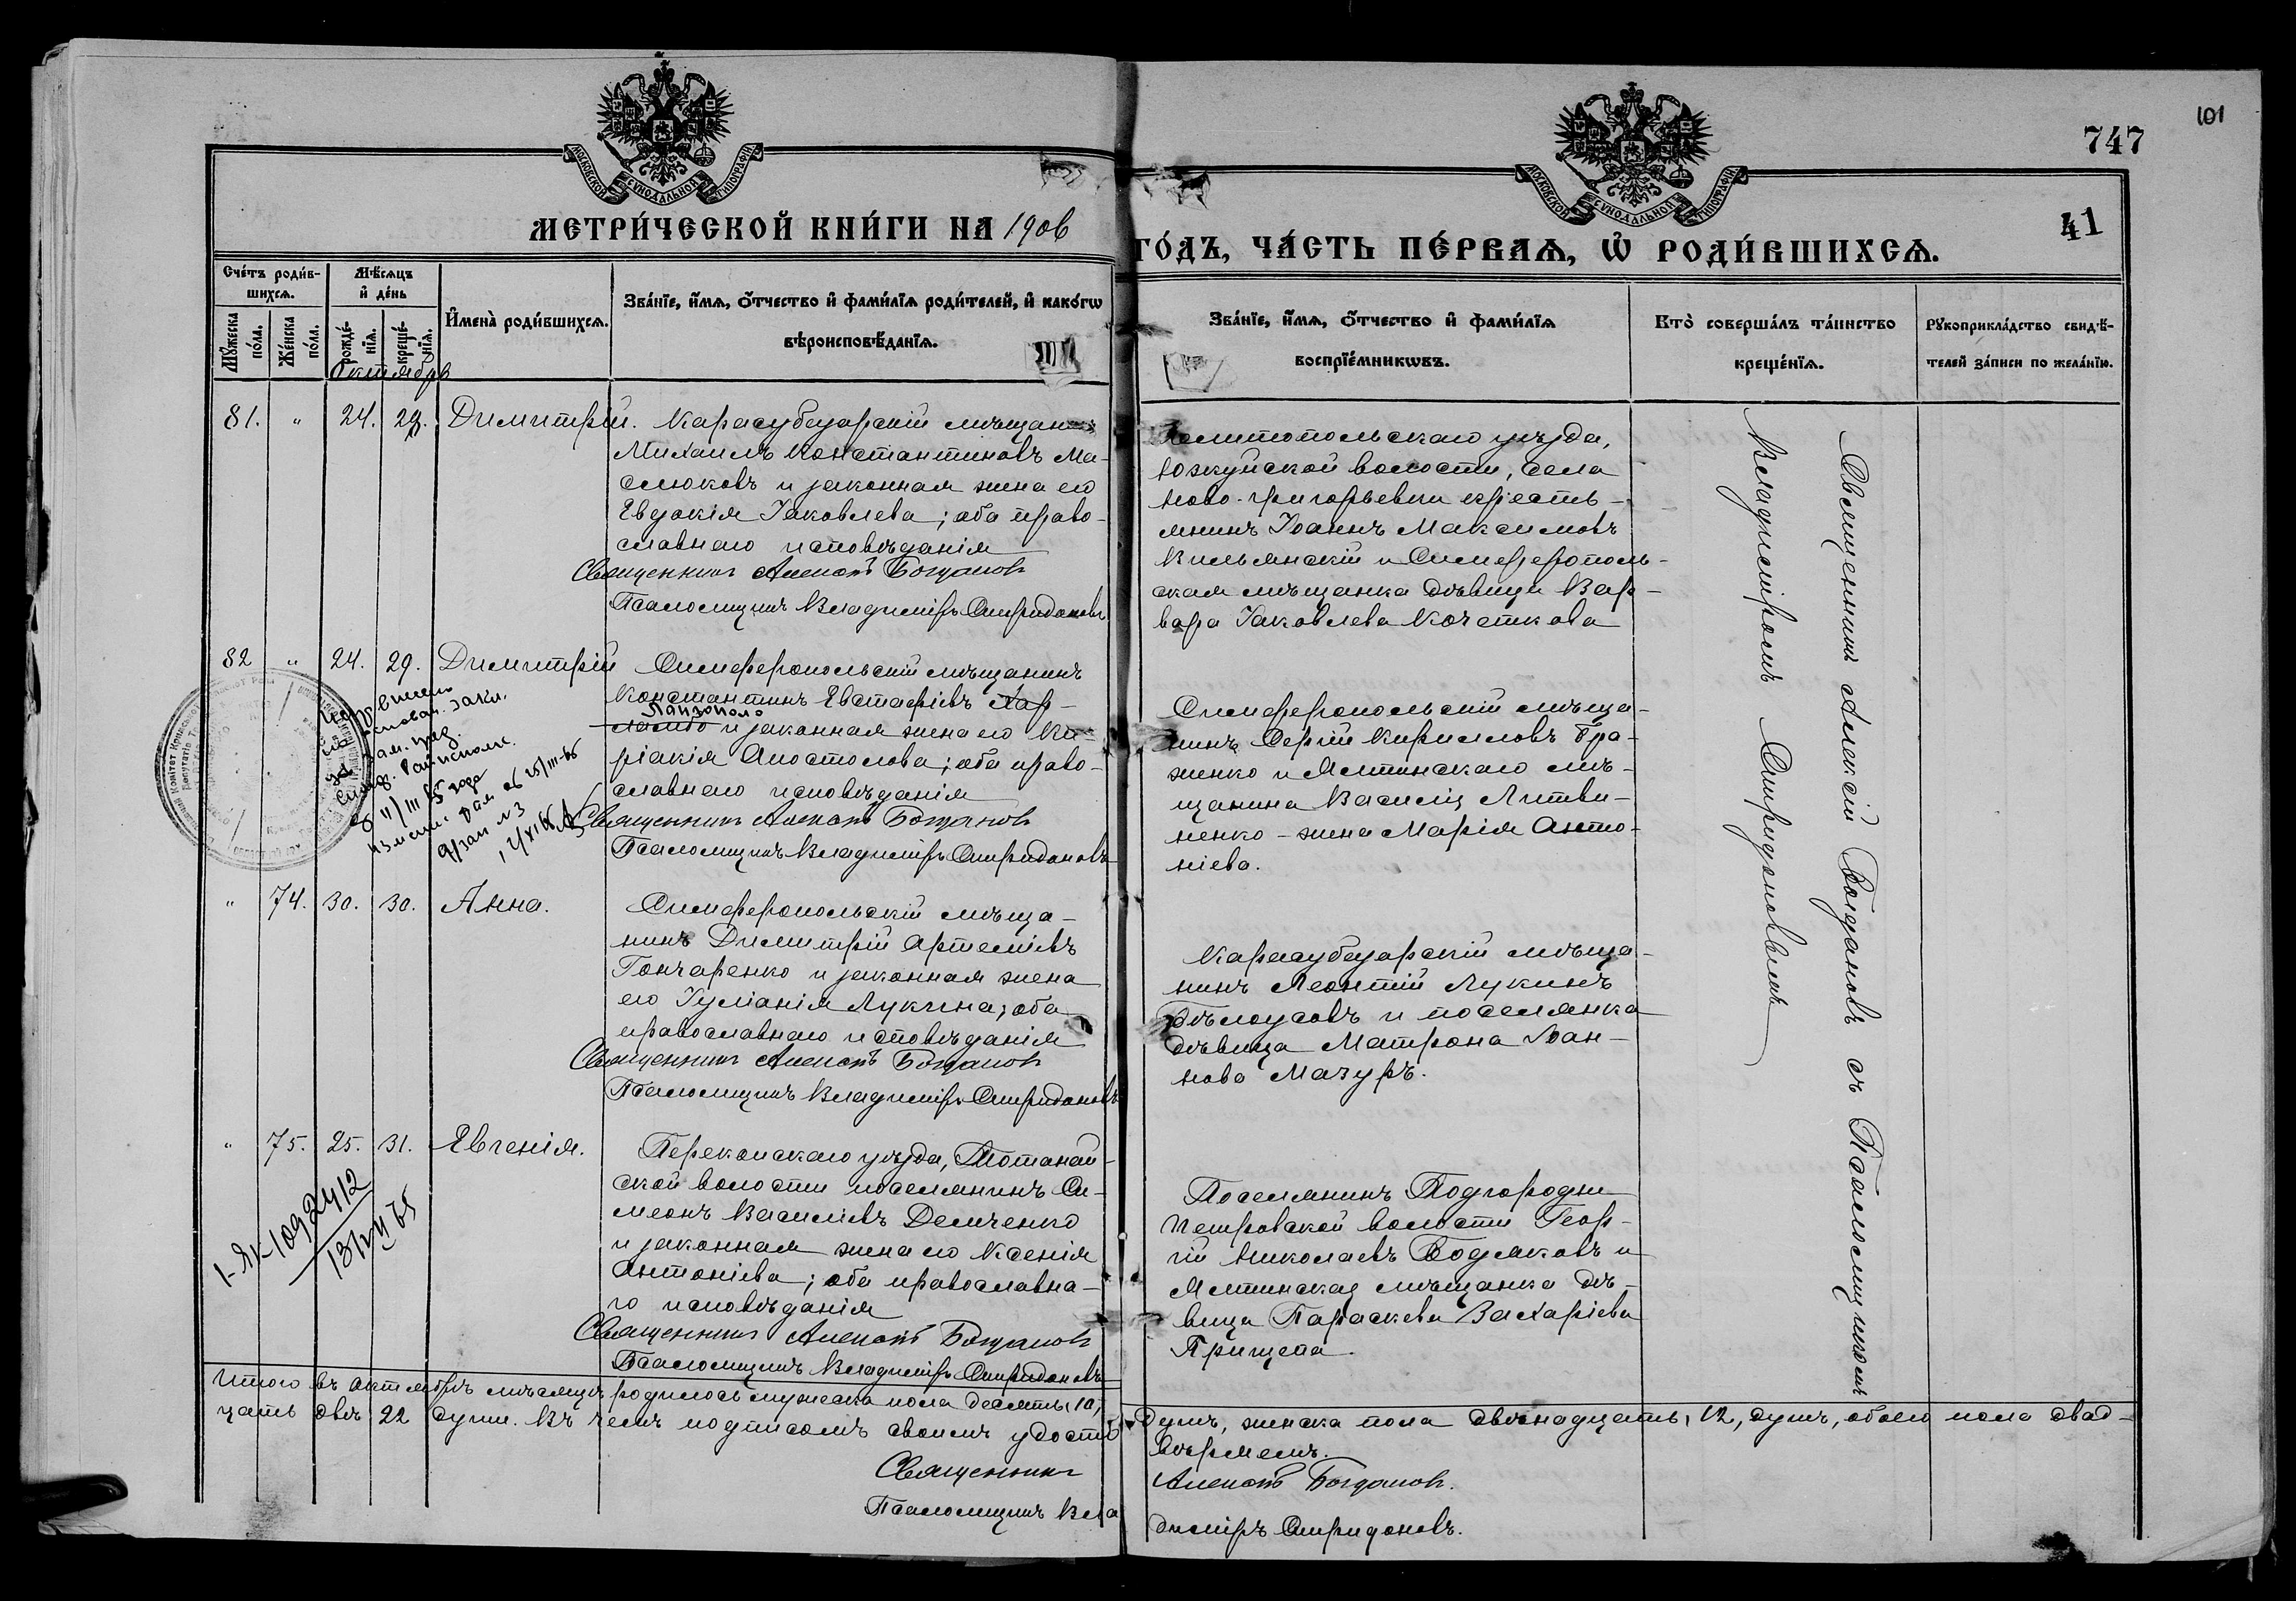 101
747
41
МОСКОВСКОЙ СѴНОДАЛЬНОЙ ТИПОГРАФІИ
МОСКОВСКОЙ СѴНОДАЛЬНОЙ ТИПОГРАФІИ
МЕТРИ́ЧЕСКОЙ КНИ́ГИ НА 1906
ГО́ДЪ, ЧА́СТЬ ПЕ́РВАѦ, Ѡ҆ РОДИ́ВШИХСѦ.
Сче́тъ роди́в-
шихсѧ.
Мѣ́сѧцъ
и҆ де́нь
Мꙋ́жеска по́ла.
Же́нска по́ла.
рожде́-
нїѧ.
креще́-
нїѧ.
И҆мена̀ роди́вшихсѧ.
Зва́нїе, и҆́мѧ, ѻ҆́тчество и҆ фами́лїѧ роди́телей, и҆ како́гѡ
вѣроисповѣ́данїѧ.
Зва́нїе, и҆́мѧ, ѻ҆́тчество и҆ фами́лїѧ
воспрїе́мникѡвъ.
Кто̀ соверша́лъ та́инство
креще́нїѧ.
Рꙋкоприкла́дство свидѣ́-
телей за́писи по жела́нїю.
Октябрь
81. " 24. 29. Димитрій. Карасубазарскій мѣщанинъ
Михаилъ Константиновъ Ма-
слюковъ и законная жена его
Евдокія Іаковлева; оба право-
славнаго исповѣданія
Священникъ Алексій Богдановъ
Псаломщикъ Владиміръ Спиридоновъ
Мелитопольскаго уѣзда,
Юзкуйской волости, села
Ново-Григорьевки кресть-
янинъ Іоаннъ Максимовъ
Кильянскій и Симферополь-
ская мѣщанка дѣвица Вар-
вара Іаковлева Кочеткова
82 " 24. 29. Димитрій Симферопольскій мѣщанинъ
Константинъ Евстафіевъ Хар-
Панзополо
и законная жена его Ки-
ріакія Апостолова; оба право-
славнаго исповѣданія
Священникъ Алексій Богдановъ
Псаломщикъ Владиміръ Спиридоновъ
Симферопольскій мѣща-
нинъ Сергій Кирилловъ Гра-
женко и Ялтинскаго мѣ-
щанина Василія Литви-
ненко - жена Марія Анто-
ніева.
" 74. 30. 30. Анна. Симферопольскій мѣща-
нинъ Димитрій Артеміевъ
Гончаренко и законная жена
его Іуліанія Лукина; оба
православнаго исповѣданія
Священникъ Алексій Богдановъ
Псаломщикъ Владиміръ Спиридоновъ
Карасубазарскій мѣща-
нинъ Леонтій Лукинъ
Бѣлоусовъ и поселянка
дѣвица Матрона Іоан-
нова Мазуръ.
" 75. 25. 31. Евгенія. Перекопскаго уѣзда, Тотанай-
ской волости поселянинъ Си-
меонъ Василіевъ Демченко
и законная жена его Ксенія
Антоніева; оба православна-
го исповѣданія
Священникъ Алексій Богдановъ
Псаломщикъ Владиміръ Спиридоновъ
Поселянинъ Подгородне
Петровской волости Геор-
гій Николаевъ Бодяковъ и
Ялтинская мѣщанка дѣ-
вица Параскева Захаріева
Прищепа.
Священникъ Алексій Богдановъ съ Псаломщикомъ
Владиміромъ Спиридоновымъ
Итого въ октябрѣ мѣсяцѣ родилось мужеска пола десять, 10, душъ, женска пола двѣнадцать, 12, душъ, обоего пола двад-
цать двѣ 22 души. Въ чемъ подписомъ своимъ удосто-
вѣряемъ.
Священникъ Алексій Богдановъ.
Псаломщикъ Владиміръ Спиридоновъ.